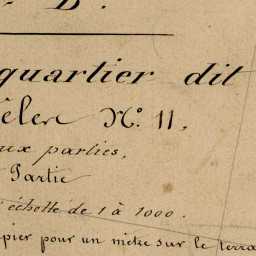 D.
quartier dit
êler N.º 11.
ux parties.
Partie
échelle de 1 à 1000.
pier pour un mètre sur le terra